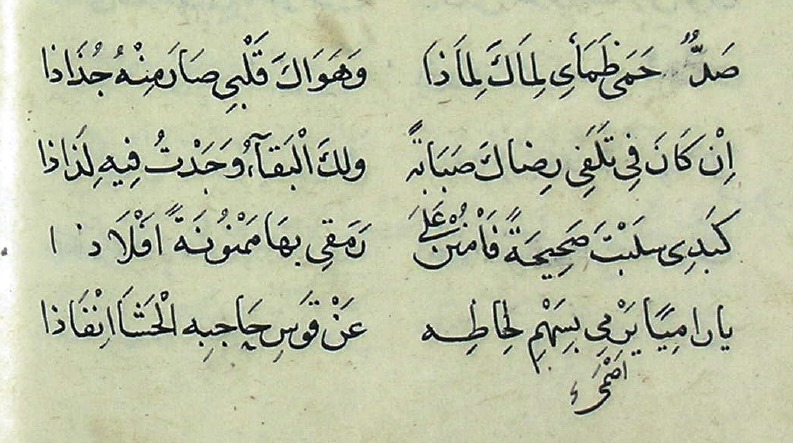 صَدٌّ حَمَى ظَمَأِي لِمَاكَ لِمَاذَا وَهَوَاكَ قَلْبِي صَارَ مِنْهُ جُذَاذَا
اِنْ كَانَ فِي تَلَفِي رِضَاكَ صَبَابَةً وَلَكَ الْبَقَآءُ وَجَدْتُ فِيهِ لَذَاذَا
كَبَدِى سَلَبْتَ صَحِيحَةً فَامْنُنْ عَلَى رَمَقِي بِهَا مَمْنُونَةً اَفْلَاذَا
يا رَامِيًا يَرْمِي بِسَهْمِ لِحَاظِهِ عَنْ قَوَسِ حَاجِبِهِ الْحَشَا اِنْفَاذَا